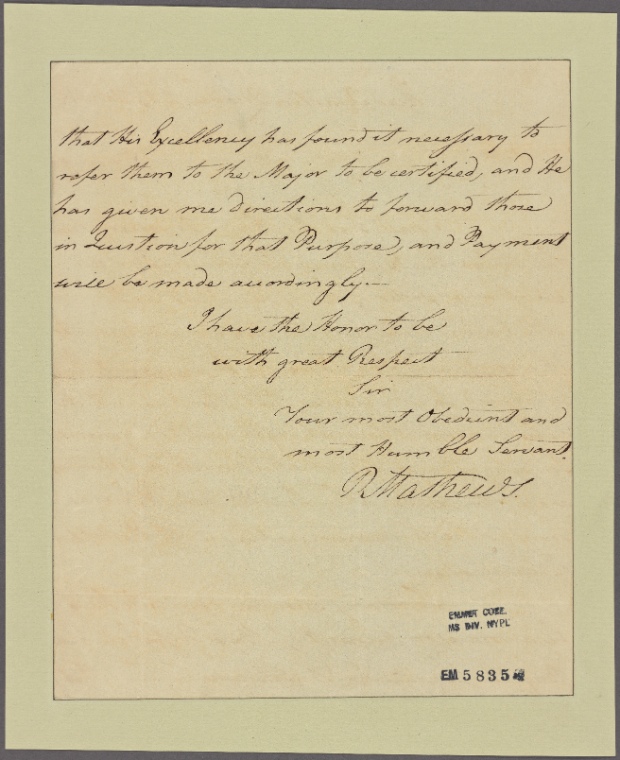 that His Excellency has found it necessary to
refer them to the Major to be certified, and He
has given me directions to forward those
in Question for that Purpose, and Payment
will be made accordingly.—
I have the Honor to be
with great Respect
Sir
Your most Obedient and
most Humble Servant
R Mathews.
EMMET COLL.
MS DIV. NYPL
EM 5835